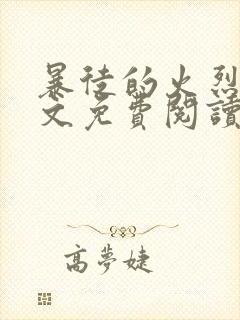 暴徒的火烈
文免費閱讀
高夢婕